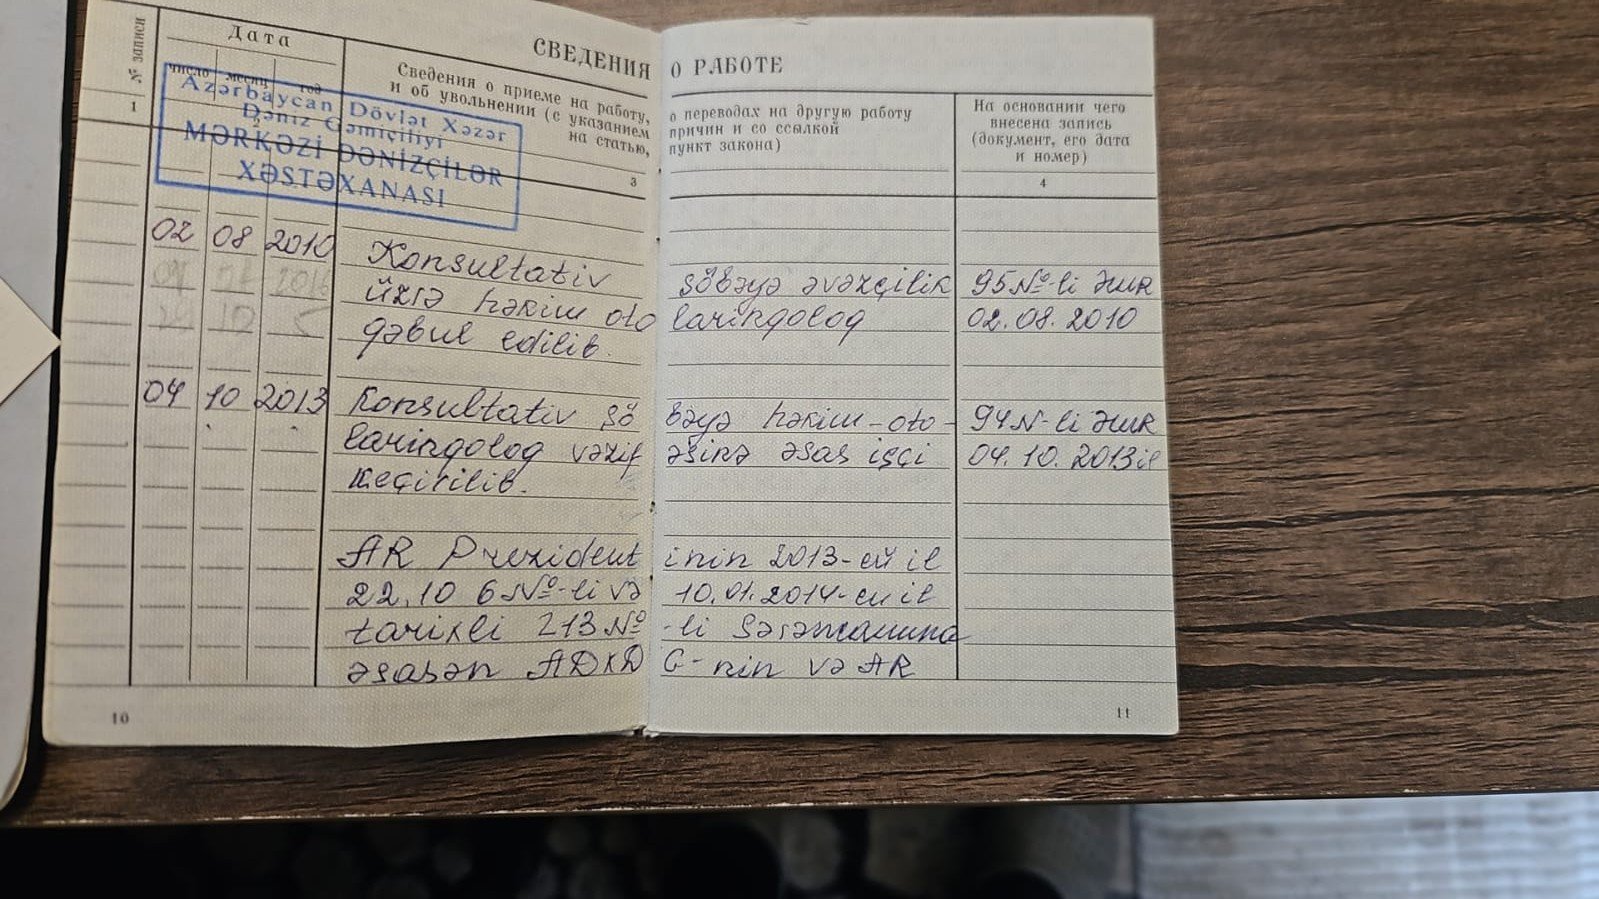 № записи
Дата
число месяц год
1
СВЕДЕНИЯ О РАБОТЕ
Сведения о приеме на работу, о переводах на другую работу
и об увольнении (с указанием причин и со ссылкой
на статью, пункт закона)
3
На основании чего
внесена запись
(документ, его дата
и номер)
4
Azərbaycan Dövlət Xəzər
Dəniz Gəmiçiliyi
MƏRKƏZİ DƏNİZÇİLƏR
XƏSTƏXANASI
02 08 2010 Konsultativ şöbəyə əvəzçilik 95 №-li əmr
üzrə həkim otolarinqoloq 02.08.2010
qəbul edilib.
04 10 2013 Konsultativ şöbəyə həkim-oto- 94 N-li əmr
larinqoloq vəzifəsinə əsas işçi 04.10.2013 il
keçirilib.
AR Prezidentinin 2013-cü il
22.10 6 №-li və 10.01.2014-cü il
tarixli 213 №-li Sərəncamına
əsasən ADXDG-nin və AR
10
11